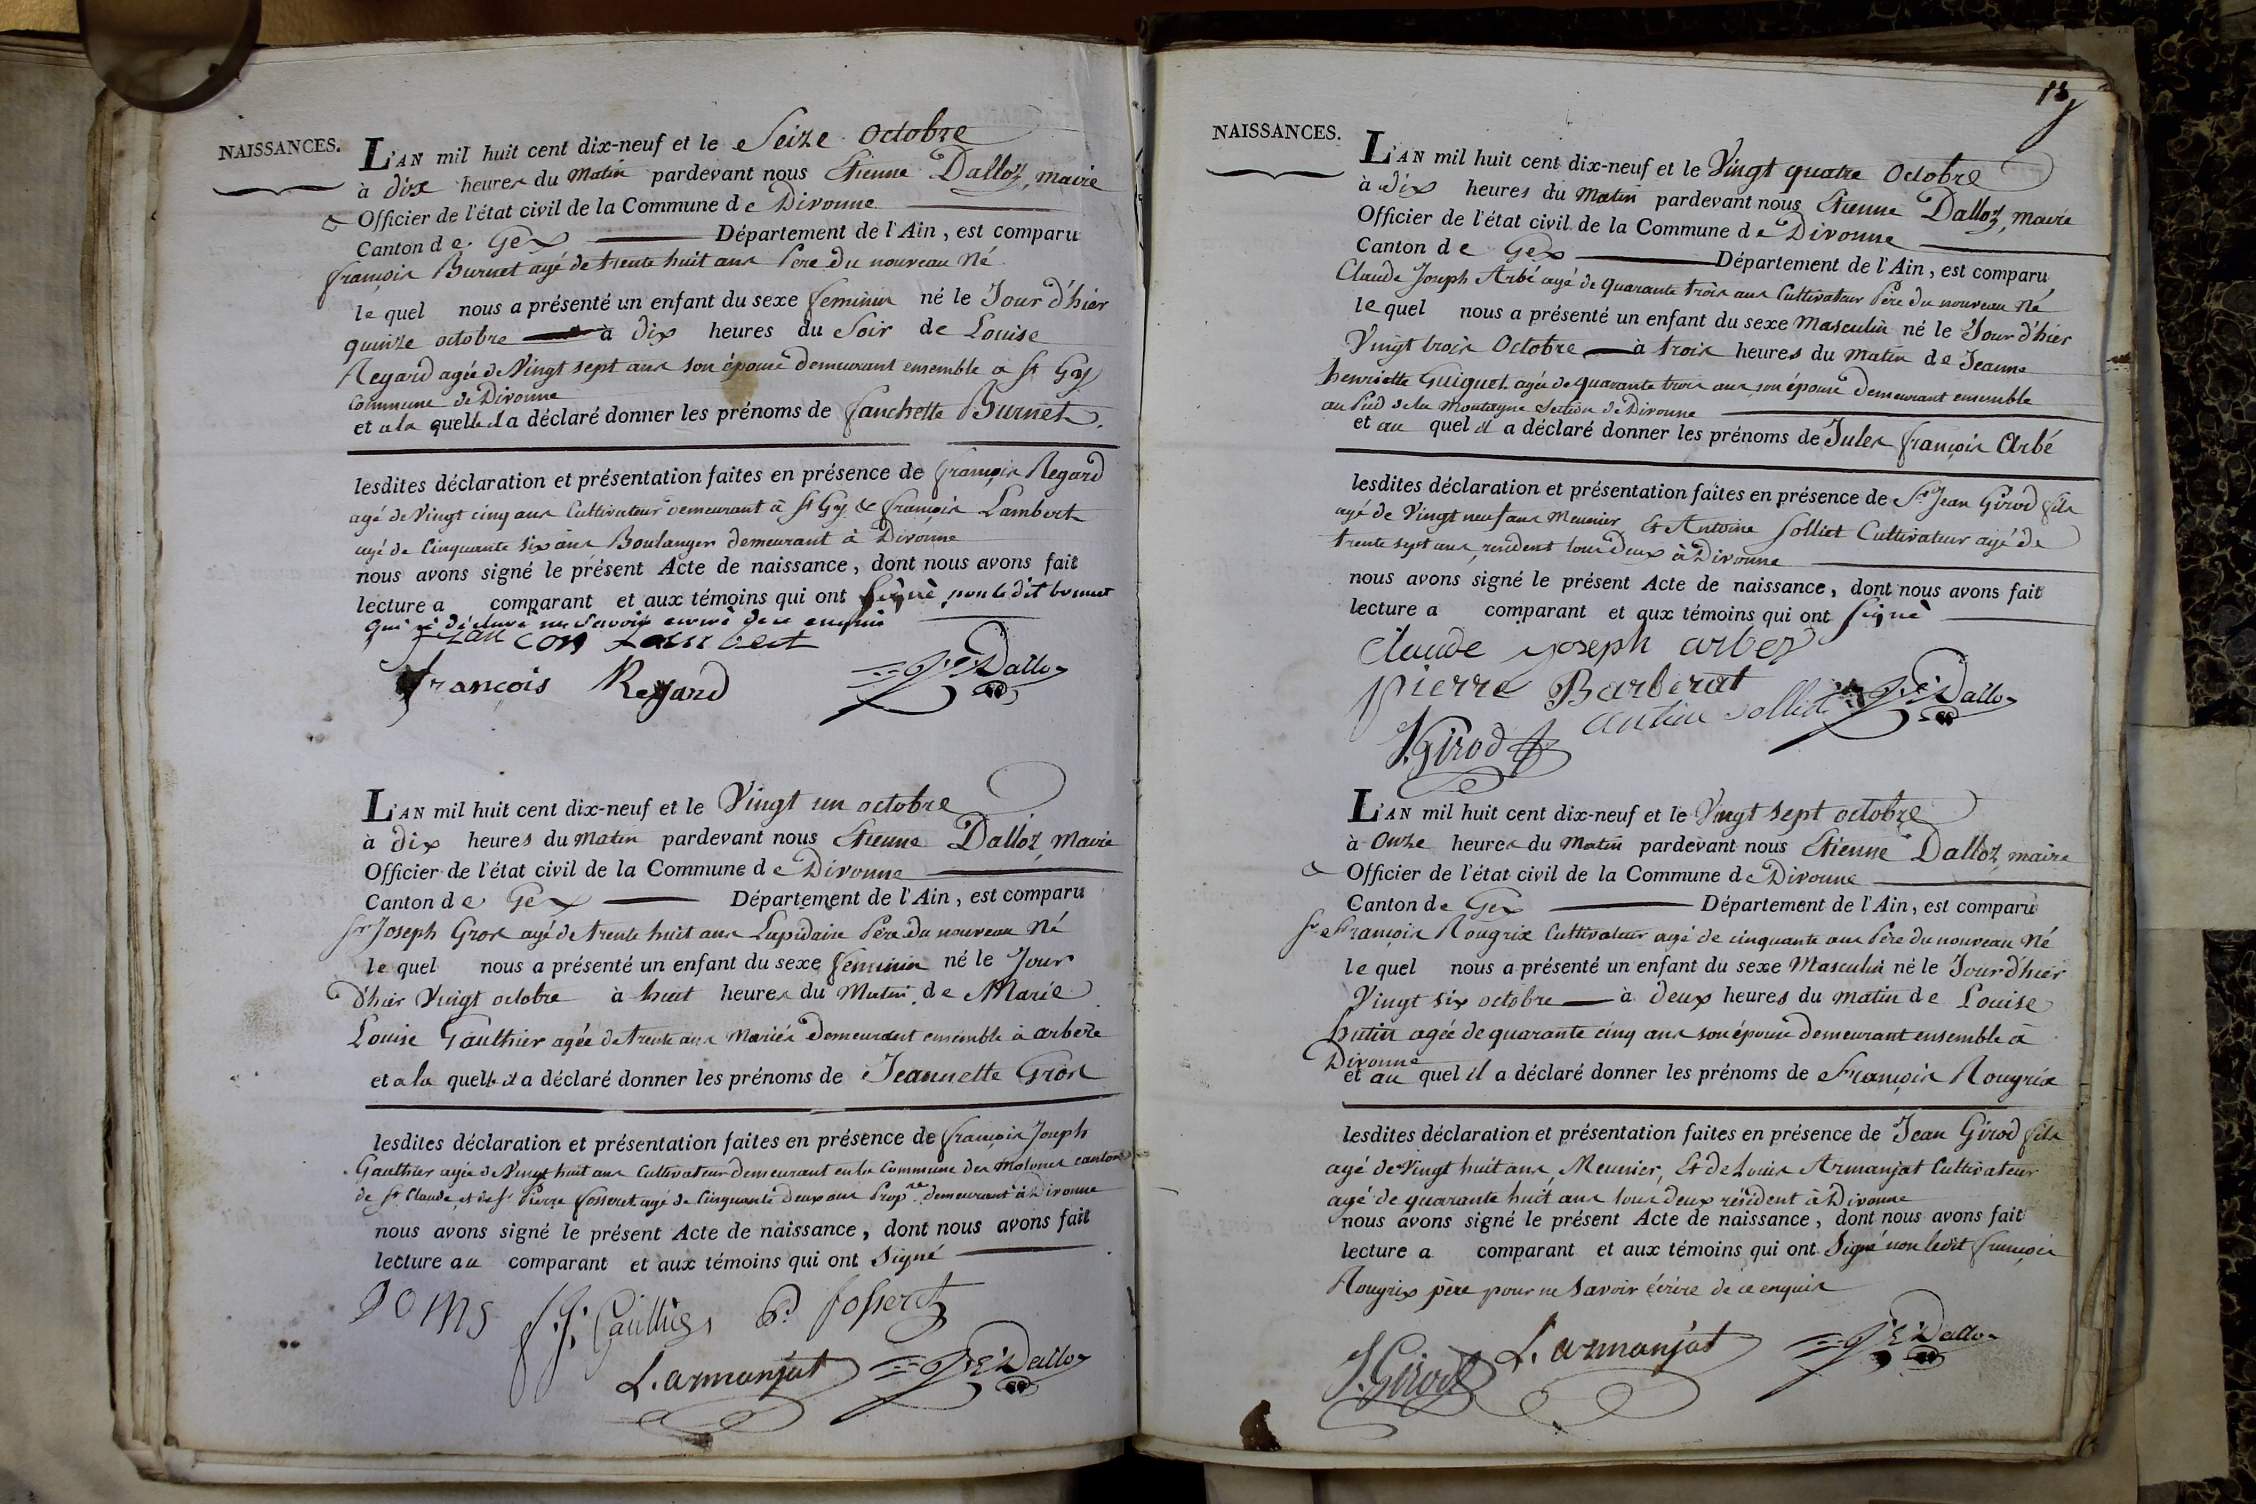 NAISSANCES.
L'AN mil huit cent dix-neuf et le Seize Octobre
à dix heures du Matin pardevant nous Etienne Dalloz, maire
Officier de l'état civil de la Commune de Divonne
Canton de Gex Département de l'Ain, est comparu
françois Burnet agé de trente huit ans Pere du nouveau Né
le quel nous a présenté un enfant du sexe feminin né le Jour d'hier
quinze octobre à dix heures du Soir de Louise
Regard agée de Vingt sept ans son épouse demeurant ensemble a St Gy
Commune de Divonne
et a la quelle il a déclaré donner les prénoms de fanchette Burnet.
lesdites déclaration et présentation faites en présence de françois Regard
agé de Vingt cinq ans Cultivateur demeurant à St Gy & françois Lambert
agé de Cinquante six ans Boulanger demeurant à Divonne
nous avons signé le présent Acte de naissance, dont nous avons fait
lecture a comparant et aux témoins qui ont Signè non le dit burnet
qui a déclaré ne Savoir ecrire de ce enquis
françois Regard Dalloz
L'AN mil huit cent dix-neuf et le Vingt un octobre
à dix heures du Matin pardevant nous Etienne Dalloz, Maire
Officier de l'état civil de la Commune de Divonne
Canton de Gex Département de l'Ain, est comparu
Sr Joseph Gros agé de trente huit ans Lapidaire Pere du nouveau Né
le quel nous a présenté un enfant du sexe feminin né le Jour
d'hier Vingt octobre à huit heures du Matin de Marie
Louise Gaulthier agée de trente ans Mariés Demeurant ensemble à arbere
et a la quelle il a déclaré donner les prénoms de Jeannette Gros
lesdites déclaration et présentation faites en présence de françois Joseph
Gaulthier agée de Vingt huit ans Cultivateur demeurant en la Commune des Molunes canton
de St Claude, et de Sr Pierre fosseret agé de Cinquante deux ans Propre demeurant à Divonne
nous avons signé le présent Acte de naissance, dont nous avons fait
lecture au comparant et aux témoins qui ont Signé
P. fosseret
L. armanjat Dalloz
NAISSANCES.
L'AN mil huit cent dix-neuf et le Vingt quatre Octobre
à dix heures du Matin pardevant nous Etienne Dalloz, maire
Officier de l'état civil de la Commune de Divonne
Canton de Gex Département de l'Ain, est comparu
Claude Joseph Arbé agé de quarante trois ans Cultivateur Père du nouveau Né
le quel nous a présenté un enfant du sexe Masculin né le Jour d'hier
Vingt trois Octobre à trois heures du Matin de Jeanne
henriette Guiguet agée de quarante trois ans son épouse demeurant ensemble
au Pied de la Montagne Section de Divonne
et au quel il a déclaré donner les prénoms de Jules françois Arbé
lesdites déclaration et présentation faites en présence de Sr Jean Girod fils
agé de Vingt neuf ans Meunier Et Antoine Solliet Cultivateur agé de
trente sept ans, résident tous deux à Divonne
nous avons signé le présent Acte de naissance, dont nous avons fait
lecture a comparant et aux témoins qui ont Signè
Claude joseph arbez
pierre Barberat
Solliet Dalloz
J. Girod
L'AN mil huit cent dix-neuf et le Vingt sept octobre
à Onze heures du Matin pardevant nous Etienne Dalloz, maire
Officier de l'état civil de la Commune de Divonne
Canton de Gex Département de l'Ain, est comparu
Sr françois Rougrix Cultivateur agé de cinquante ans Père du nouveau Né
le quel nous a présenté un enfant du sexe Masculin né le Jour d'hier
Vingt six octobre à deux heures du matin de Louise
hutin agée de quarante cinq ans son épouse demeurant ensemble à
Divonne
et au quel il a déclaré donner les prénoms de François Rougrix
lesdites déclaration et présentation faites en présence de Jean Girod fils
agé de Vingt huit ans, Meunier, Et de Louis Armanjat Cultivateur
agé de quarante huit ans tous deux résident à Divonne
nous avons signé le présent Acte de naissance, dont nous avons fait
lecture a comparant et aux témoins qui ont Signé non ledit françois
Rougrix père pour ne Savoir écrire de ce enquis
J. Girod L. armanjat Dalloz